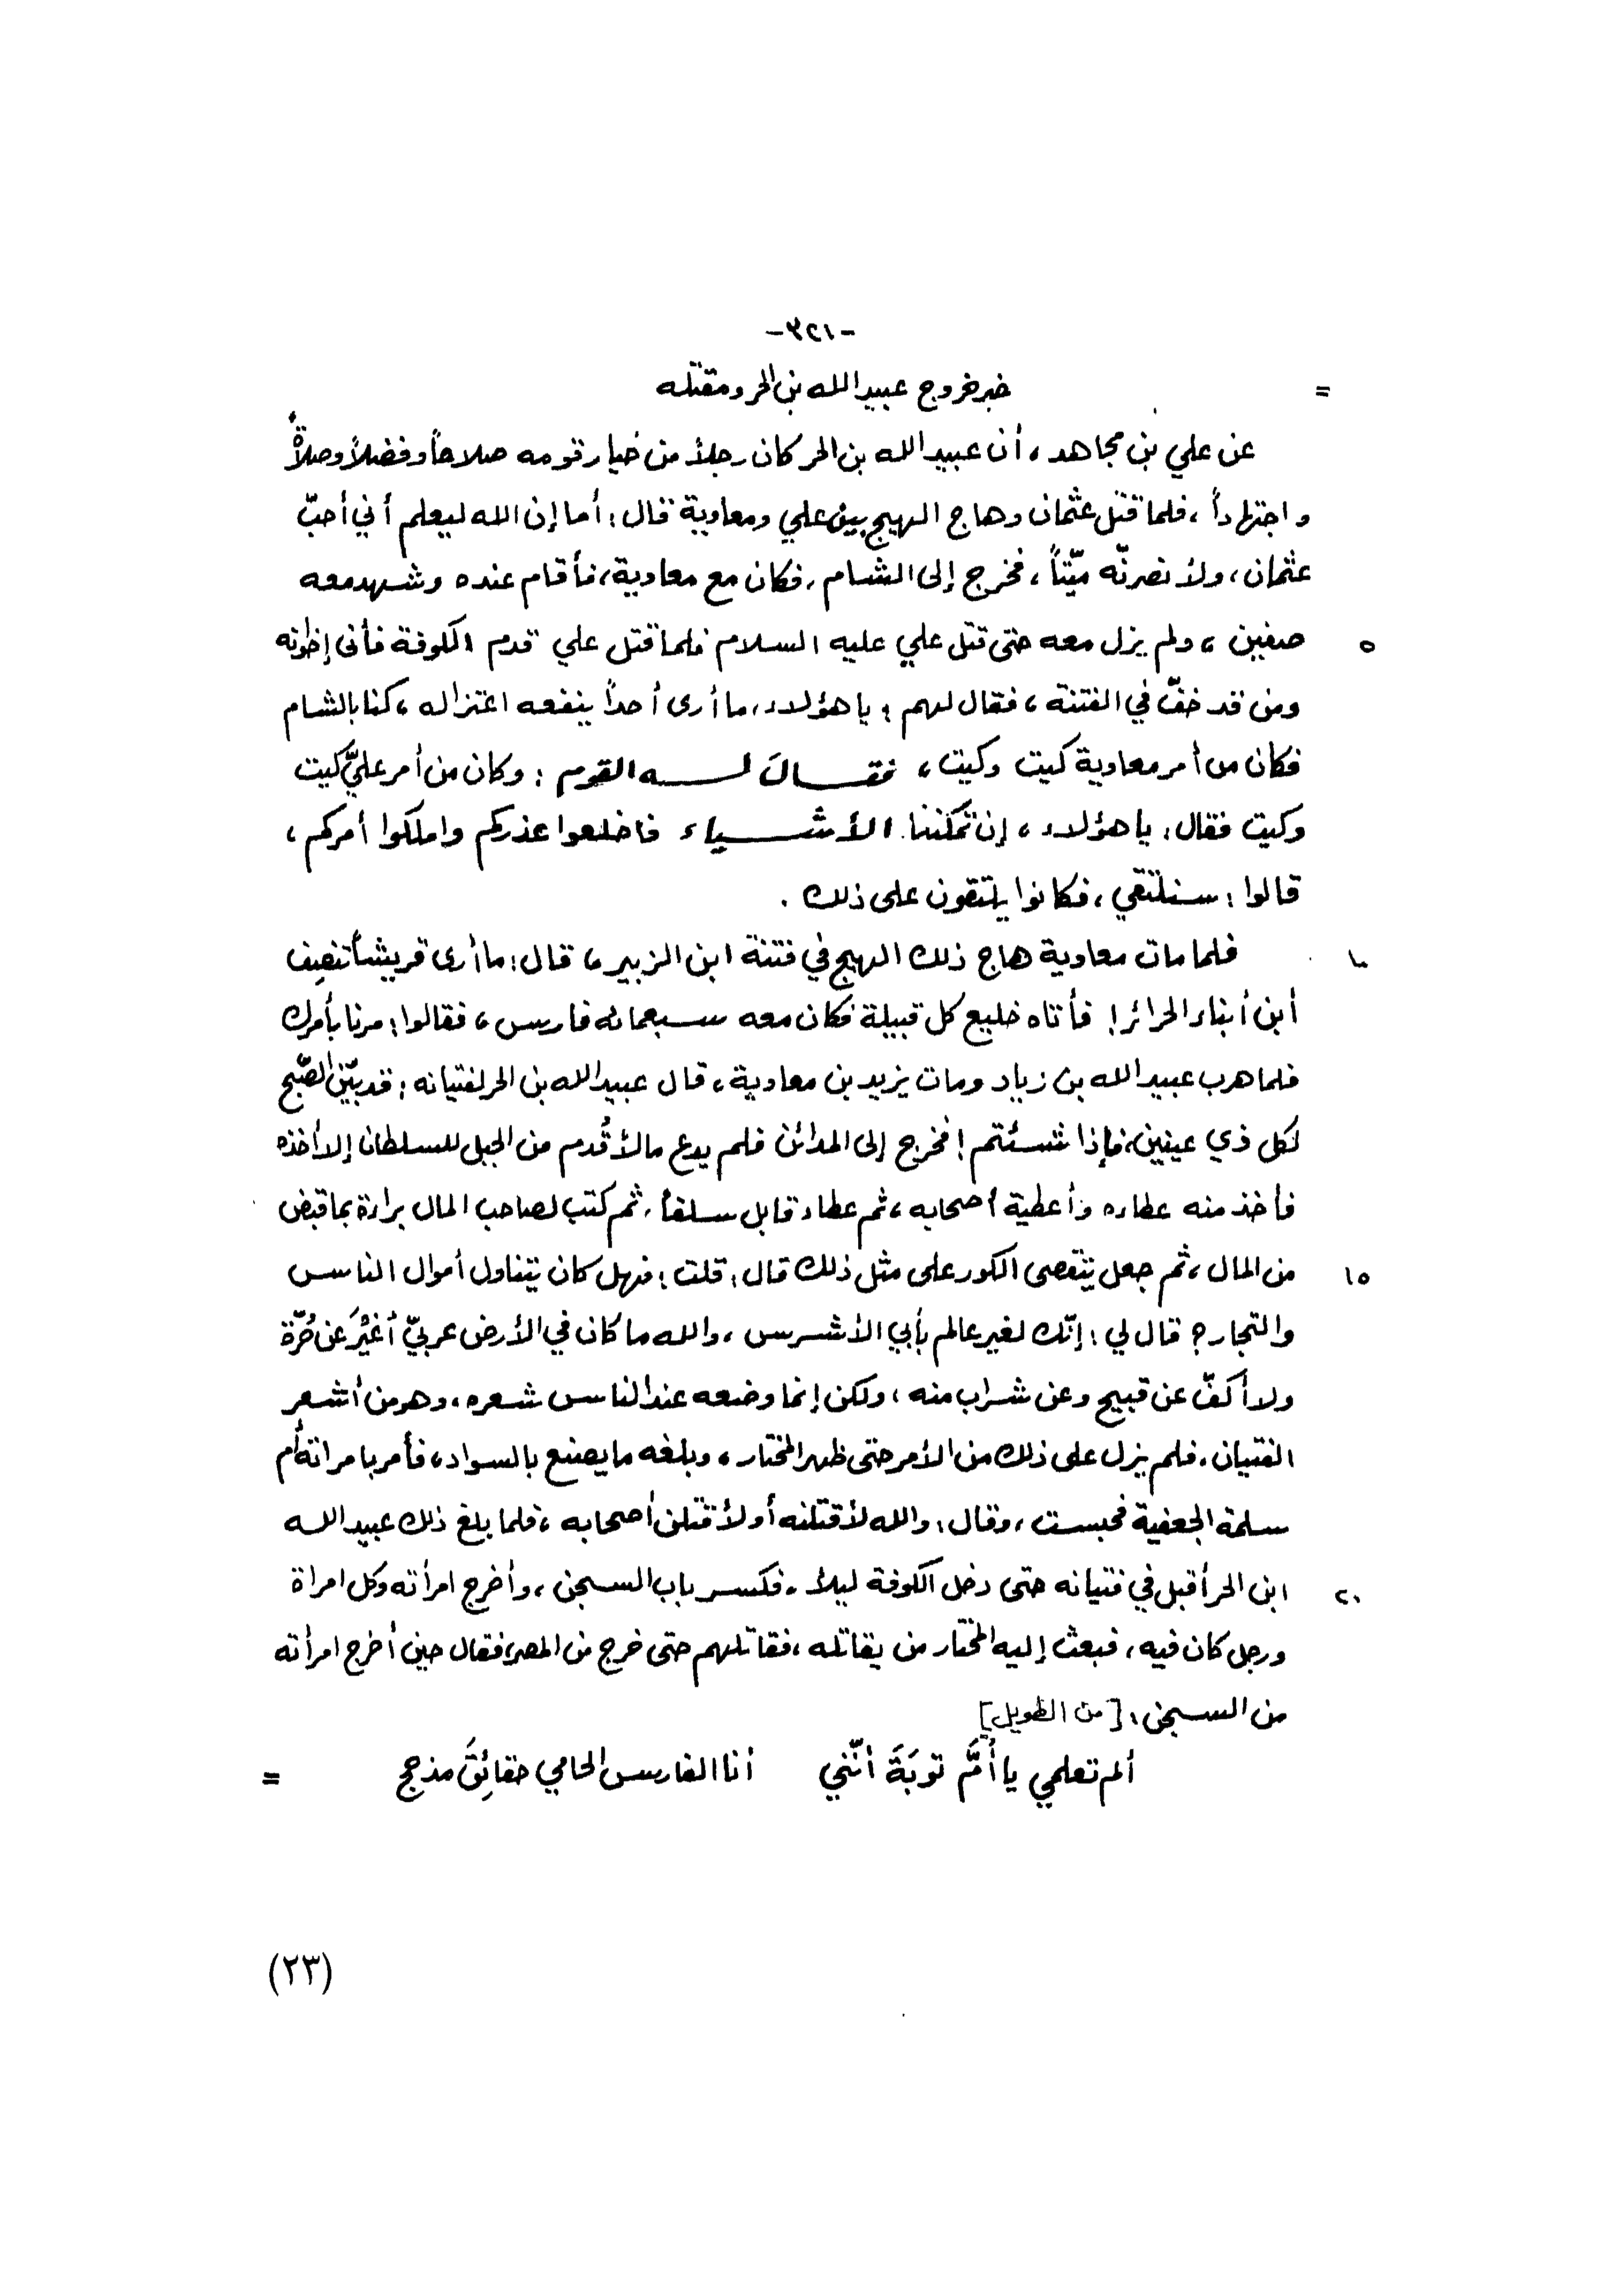 -٣٢١-
= خبر خروج عبيدالله بن الحر ومقتله
عن علي بن مجاهد، أن عبيدالله بن الحر كان رجلاً من خيار قومه صلاحاً وفضلاً وصلاةً
واجتهاداً، فلما قتل عثمان وهاج الهيج بين علي ومعاوية قال: أما إن الله ليعلم أني أحبّ
عثمان، ولأنصرنّه ميّتاً، فخرج إلى الشام، فكان مع معاوية، فأقام عنده وشهد معه
٥ صفين، ولم يزل معه حتى قتل علي عليه السلام فلما قتل علي قدم الكوفة فأتى إخوانه
ومن قد خفّ في الفتنة، فقال لهم: يا هؤلاء، ما أرى أحداً ينفعه اعتزاله، كنا بالشام
فكان من أمر معاوية كيت وكيت، فقال له القوم: وكان من أمر عليّ كيت
وكيت فقال: يا هؤلاء، إن تمكننا الأشياء فاخلعوا عذركم واملكوا أمركم،
قالوا: سنلتقي، فكانوا يلتقون على ذلك.
١٠ فلما مات معاوية هاج ذلك الهيج في فتنة ابن الزبير، قال: ما أرى قريشاً تنصِف
أين أبناء الحرائر! فأتاه خليع كل قبيلة فكان معه سبعمائه فارس، فقالوا: مرنا بأمرك
فلما هرب عبيدالله بن زياد ومات يزيد بن معاوية، قال عبيدالله بن الحر لفتيانه: قد بيّن الصّبح
لكل ذي عينين، فإذا شئتم! فخرج إلى المدائن فلم يدع مالاً قُدم من الجبل للسلطان إلا أخذه
فأخذ منه عطاءه وأعطية أصحابه، ثم عطاء قابل سلفاً، ثم كتب لصاحب المال براءة بما قبض
١٥ من المال، ثم جعل يتقصى الكور على مثل ذلك قال: قلت: فهل كان يتناول أموال الناس
والتجار؟ قال لي: إنّك لغير عالم بأبي الأشرس، والله ما كان في الأرض عربيّ أغْيَرَ عن حُرّة
ولا أكفّ عن قبيح وعن شراب منه، ولكن إنما وضعه عند الناس شعره، وهو من أشعر
الفتيان. فلم يزل على ذلك من الأمر حتى ظهر المختار، وبلغه ما يصنع بالسواد، فأمر بامراته أم
سلمة الجعفية فحبست، وقال: والله لأقتلنه أو لأقتلن أصحابه، فلما بلغ ذلك عبيدالله
٢٠ ابن الحر أقبل في فتيانه حتى دخل الكوفة ليلاً، فكسر باب السجن، وأخرج امرأته وكل امراة
ورجل كان فيه، فبعث إليه المختار من يقاتله، فقاتلهم حتى خرج من المصر، فقال حين أخرج امرأته
من السجن: [من الطويل]
ألم تعلمي يا أُمَّ توبَةَ أنّني أنا الفارس الحامي حقائِقَ مذحج =
(٢٣)